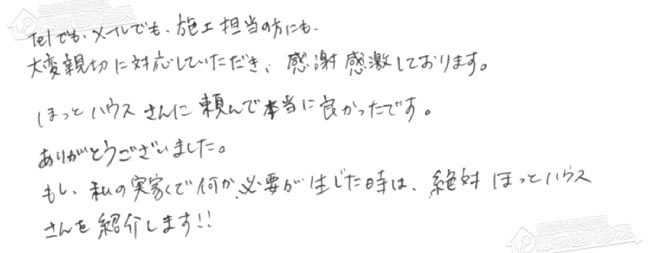 Telでも、メールでも、施工担当の方にも、
大変親切に対応していただき、感謝感激しております。
ほっとハウスさんに頼んで本当に良かったです。
ありがとうございました。
もし、私の実家で何か必要が生じた時は、絶対ほっとハウス
さんを紹介します!!